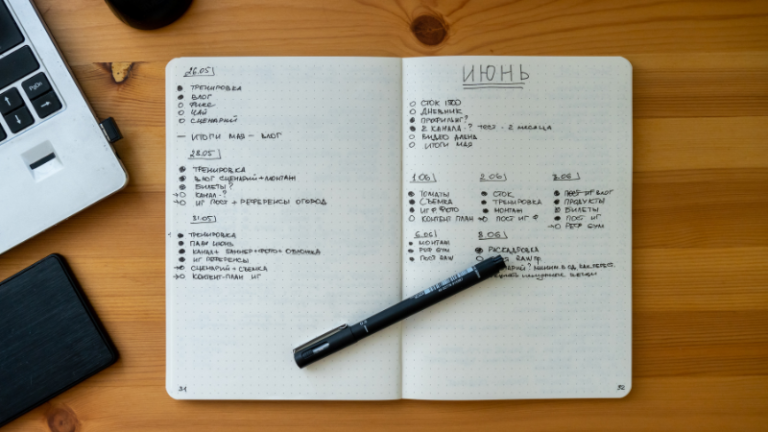 26.05
ТРЕНИРОВКА
БЛОГ
ЧАЙ
СЦЕНАРИЙ
— ИТОГИ МАЯ — БЛОГ
28.05
ТРЕНИРОВКА
БЛОГ СЦЕНАРИЙ + МОНТАЖ
БИЛЕТЫ?
КАНАЛ - ?
ИГ ПОСТ + РЕФЕРЕНСЫ ОГОРОД
31.05
ТРЕНИРОВКА
ПЛАН ИЮНЬ
КАНАЛ + БАННЕР + ФОТО + ОЗВУЧКА
ИГ РЕФЕРЕНСЫ
СЦЕНАРИЙ + СЪЕМКА
КОНТЕНТ-ПЛАН ИГ
31
ИЮНЬ
СТОК 1500
ДНЕВНИК
ПРОФИЛИНГ?
2 КАНАЛА - ? ТЕСТ - 2 МЕСЯЦА
ВИДЕО
ИТОГИ МАЯ
1.06
ТОМАТЫ
СЪЕМКА
ИГ # ФОТО
КОНТЕНТ ПЛАН
2.06
СТОК
ТРЕНИРОВКА
МОНТАЖ
ПОСТ ИГ #
БЛОГ
ПРОДУКТЫ
БИЛЕТЫ
ПОСТ ИГ
РЕФ GYM
6.06
МОНТАЖ
РЕФ GYM
ПОСТ RAW
8.06
РАСКАДРОВКА
RAW
32